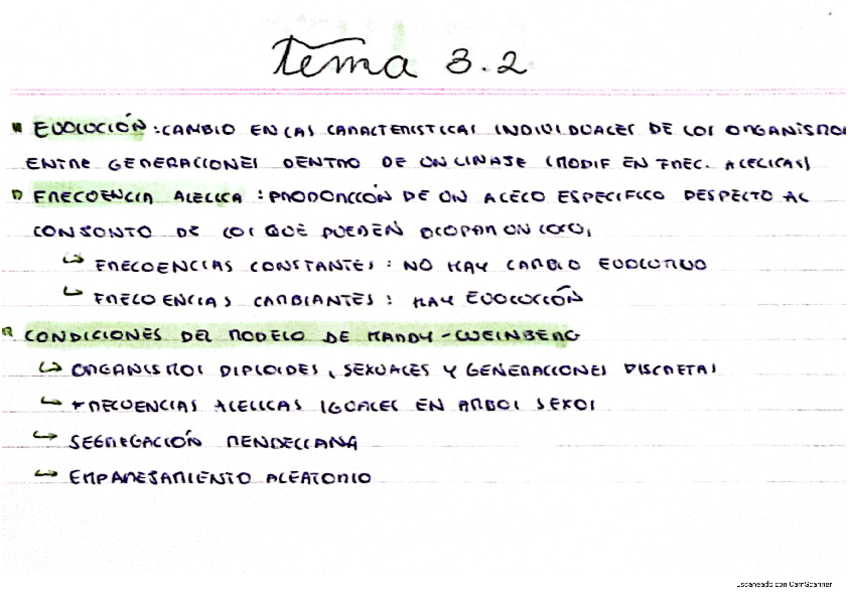 tema 3.2
EVOLUCIÓN : CAMBIO EN LAS CARACTERISTICAS INDIVIDUALES DE LOS ORGANISMOS
ENTRE GENERACIONES DENTRO DE UN LINAJE (MODIF EN FREC. ALELICAS)
FRECUENCIA ALELICA : PRODORCCIÓN DE UN ALELO ESPECIFICO RESPECTO AL
CONJUNTO DE LOS QUE PUEDEN OCUPAR UN LOCUS
↳ FRECUENCIAS CONSTANTES : NO HAY CAMBIO EVOLUTIVO
↳ FRECUENCIAS CAMBIANTES : HAY EVOLUCIÓN
CONDICIONES DEL MODELO DE HARDY-WEINBERG
↳ ORGANISMOS DIPLOIDES, SEXUALES Y GENERACIONES DISCRETAS
↳ FRECUENCIAS ALELICAS IGUALES EN AMBOS SEXOS
↳ SEGREGACIÓN MENDELIANA
↳ EMPAREJAMIENTO ALEATORIO
Escaneado con CamScanner